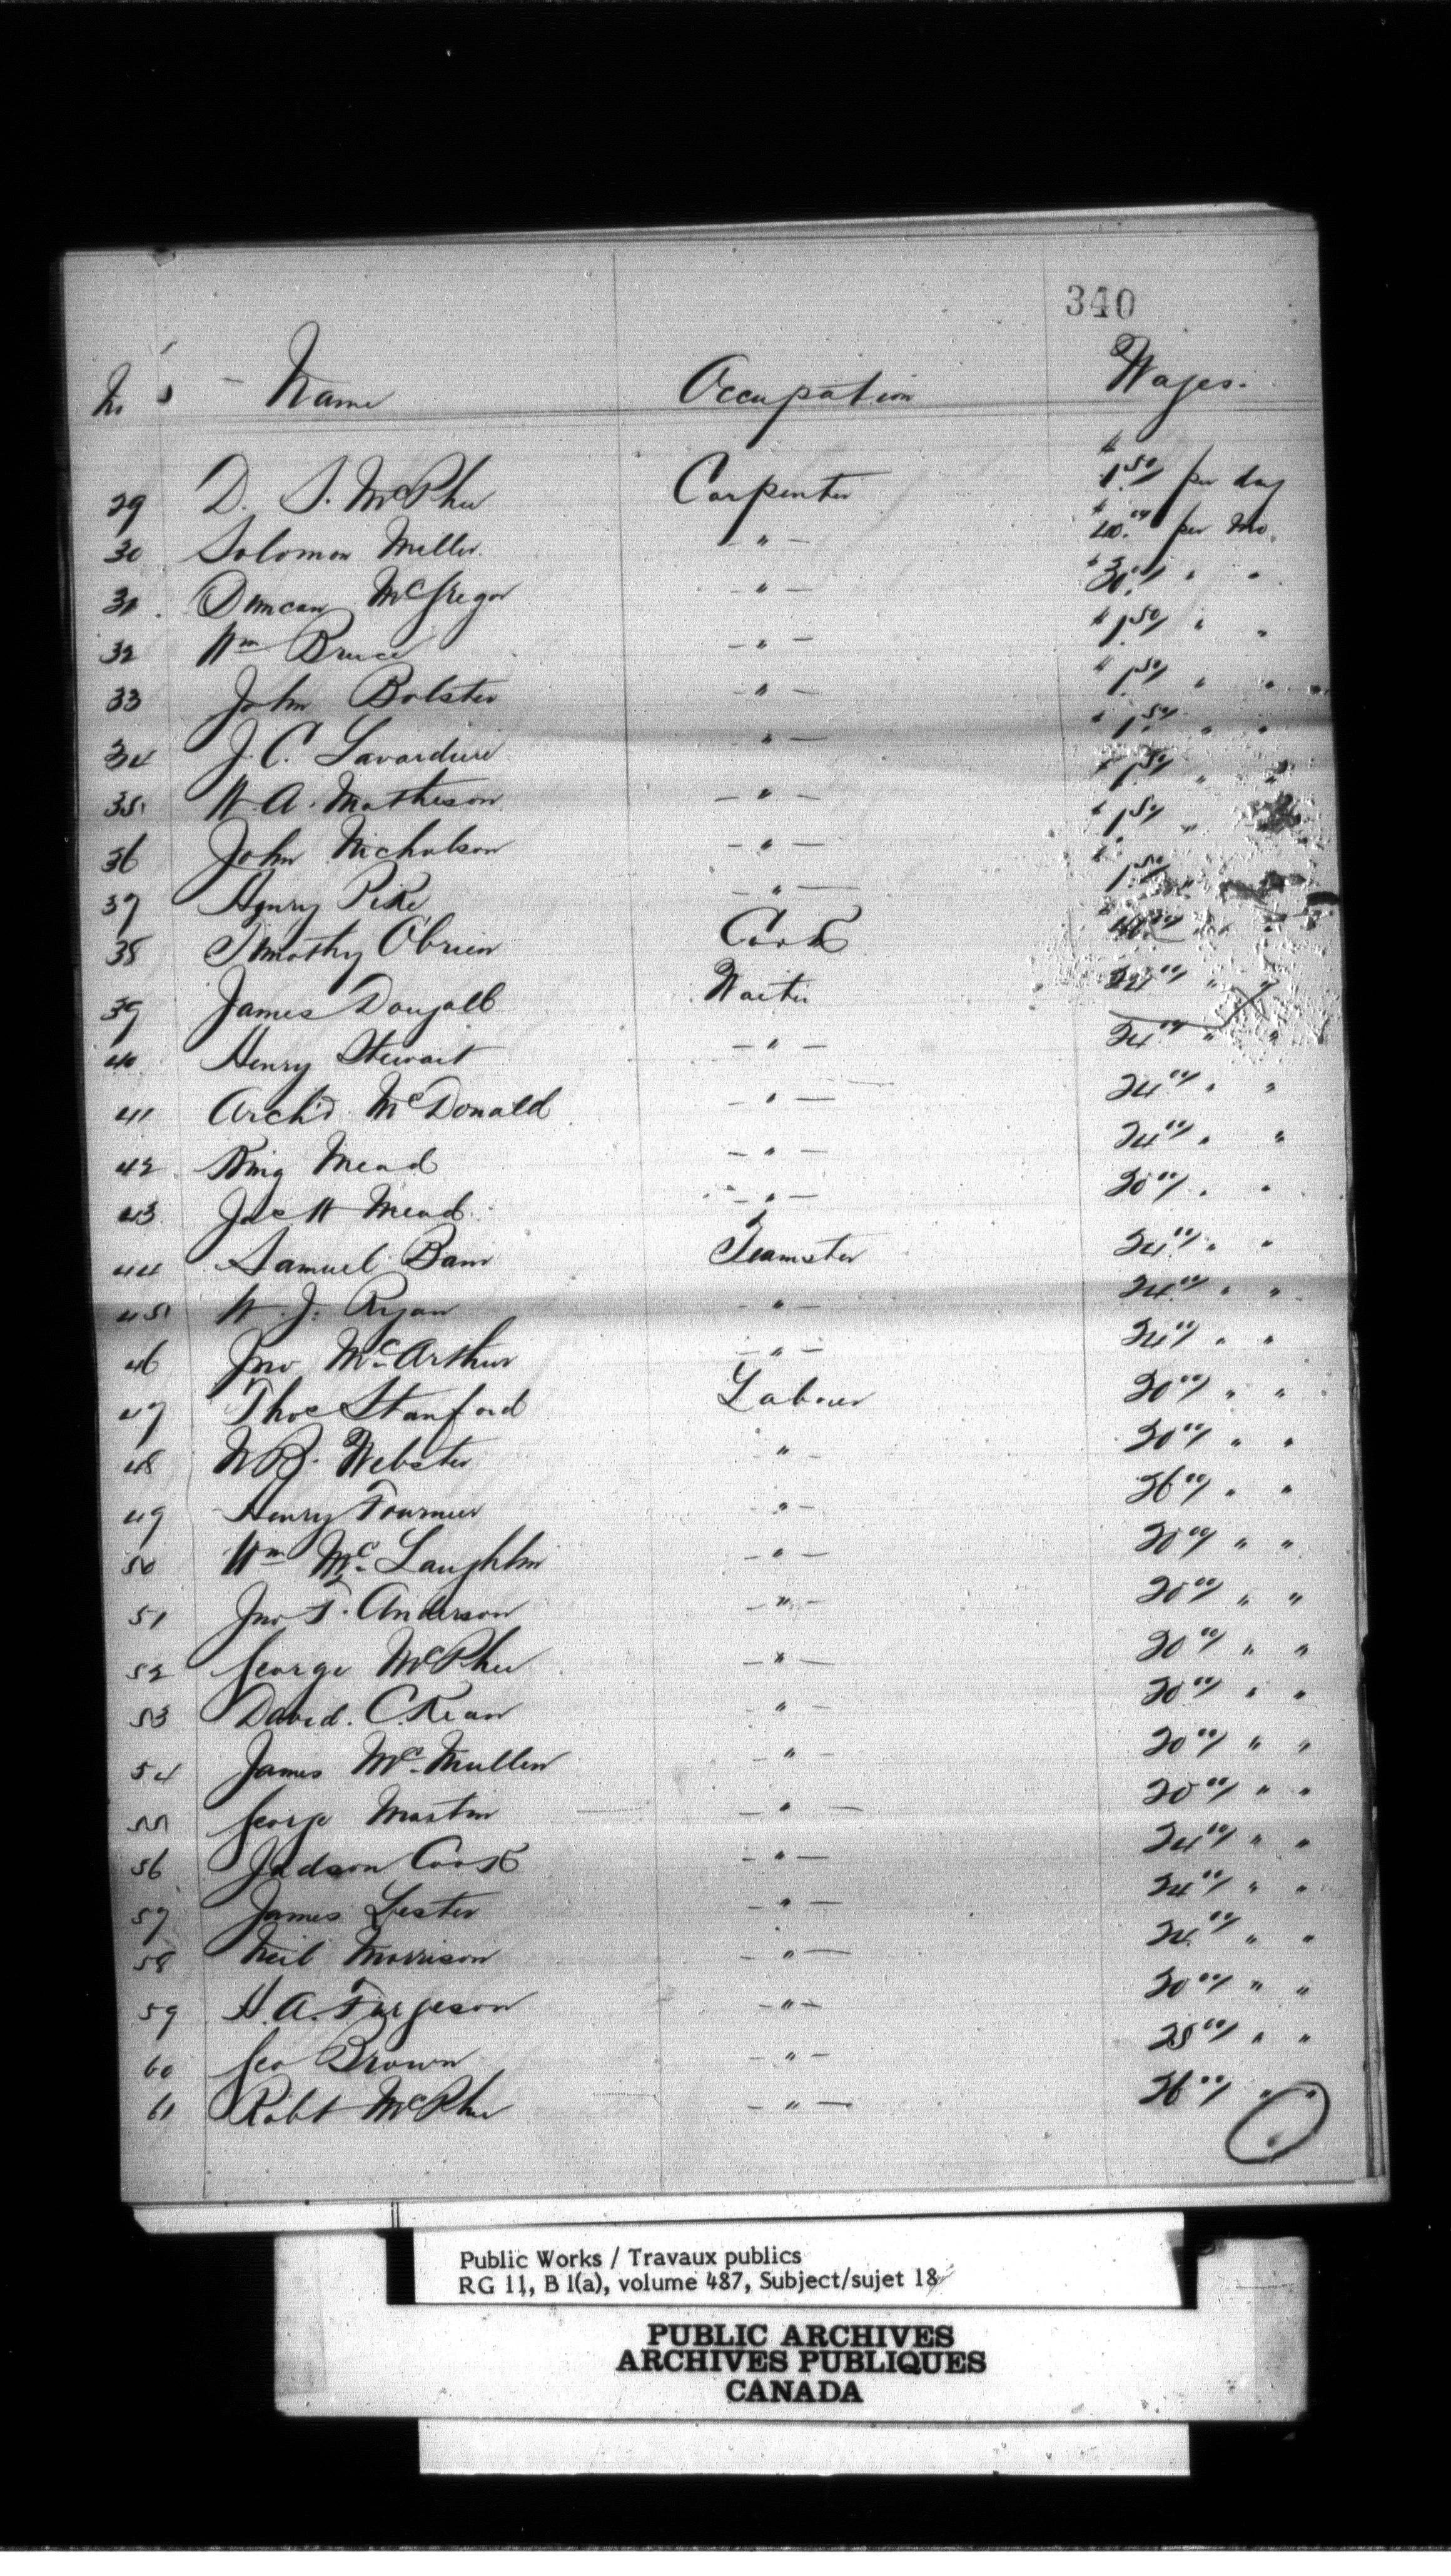 340
No's - Name Occupation Wages.
29 D. S. McPhee Carpenter $1.50/ per day
30 Solomon Miller. - " - $40.00/ per Mo.
31. Duncan McGregor - " - $30.00/ " "
32 Wm Bruce - " - $1.50/ " "
33 John Bolster - " - $1.50/ " "
34 J. C. Lavardure - " - $1.50/ " "
35 W. A. Matheson - " - $1.50/ " "
36 John Nicholson - " - $1.50/ "
37 Henry Pike - " - $1.50/ "
38 Timothy Obrien Cook " "
39 James Dougall Waiter 24.00/ " "
40 Henry Stewart - " - 24.00/ " "
41 Archd. McDonald - " - 24.00/ " "
42 King Mead - " - 24.00/ " "
43 Mead - " - 20.00/ " "
44 Samuel Bam Teamster 24.00/ " "
45 W. J. Ryan - " - 24.00/ " "
46 Jno McArthur - " - 24.00/ " "
47 Thos Stanford Labour 20.00/ " "
48 W B. Webster " - 20.00/ " "
49 Henry Fournier " - 26.00/ " "
50 Wm McLaughlin - " - 20.00/ " "
51 Jno F. Anderson - " - 20.00/ " "
52 George McPhee - " - 20.00/ " "
53 David. C. Kean " - 20.00/ " "
54 James McMullen - " - 20.00/ " "
55 George Martin - " - 20.00/ " "
56 Judson Cook - " - 24.00/ " "
57 James Lester - " - 24.00/ " "
58 Neil Morrison - " - 24.00/ " "
59 H. A. Furgeson - " - 20.00/ " "
60 Geo Brown - " - 28.00/ " "
61 Robt McPhee - " - 26.00/ " "
Public Works / Travaux publics
RG 11, B 1(a), volume 487, Subject/sujet 18
PUBLIC ARCHIVES
ARCHIVES PUBLIQUES
CANADA